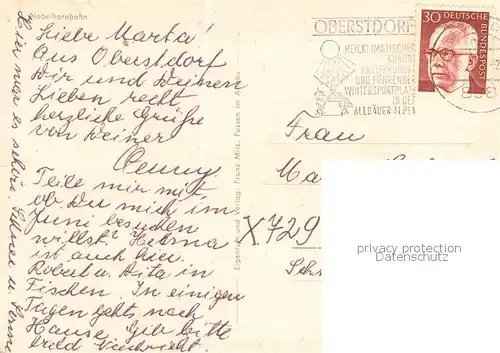 Nebelhornbahn
Liebe Marta!
Aus Oberstdorf
Dir und Deinen
Lieben recht
herzliche Grüße
von Deiner
Teile mir mit
ob Du mich im
Juni besuchen
willst? Helma
ist auch hier.
Robert u. Rita in
Fischen. In einigen
Tagen gehts nach
Hause. Gib bitte
bald Nachricht.
Hier war es schön. Schnee u. Sonne
Eigentum und Verlag: Franz Milz, Füssen im Allgäu
OBERSTDORF
HEILKLIMATISCHER
KURORT
KNEIPPKURORT
UND FÜHRENDER
WINTERSPORTPLATZ
IN DEN
ALLGÄUER ALPEN
30 DEUTSCHE
BUNDESPOST
Frau
X729
privacy protection
Datenschutz